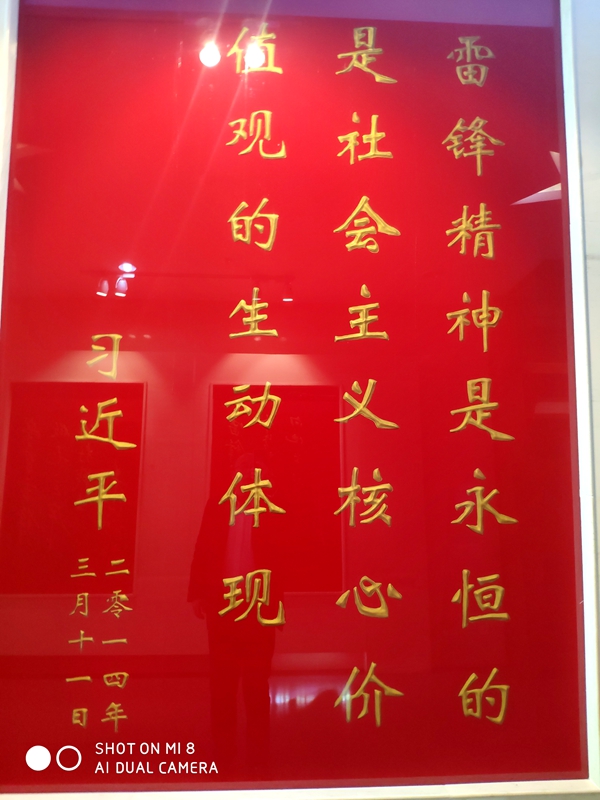 雷锋精神是永恒的
是社会主义核心价
值观的生动体现
习近平
二零一四年
三月十一日
SHOT ON MI 8
AI DUAL CAMERA